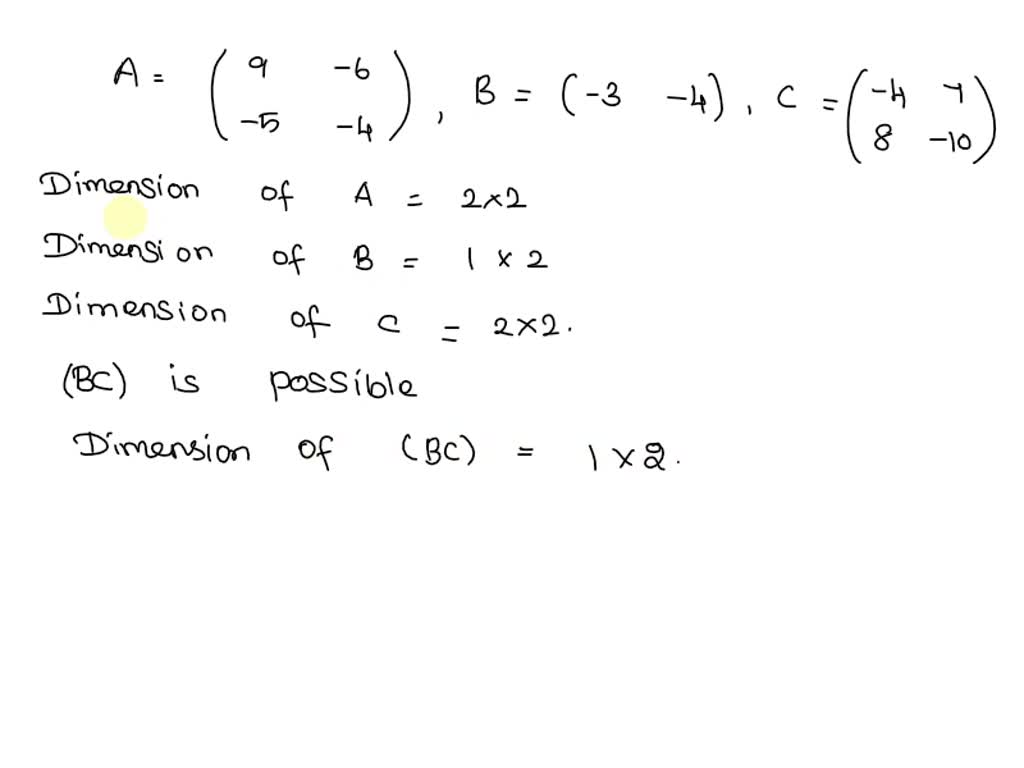 A = ( 9 -6 -5 -4 ) , B = (-3 -4) , C = ( -4 7 8 -10 )
Dimension of A = 2×2
Dimension of B = 1 × 2
Dimension of C = 2×2.
(BC) is possible
Dimension of (BC) = 1 × 2.